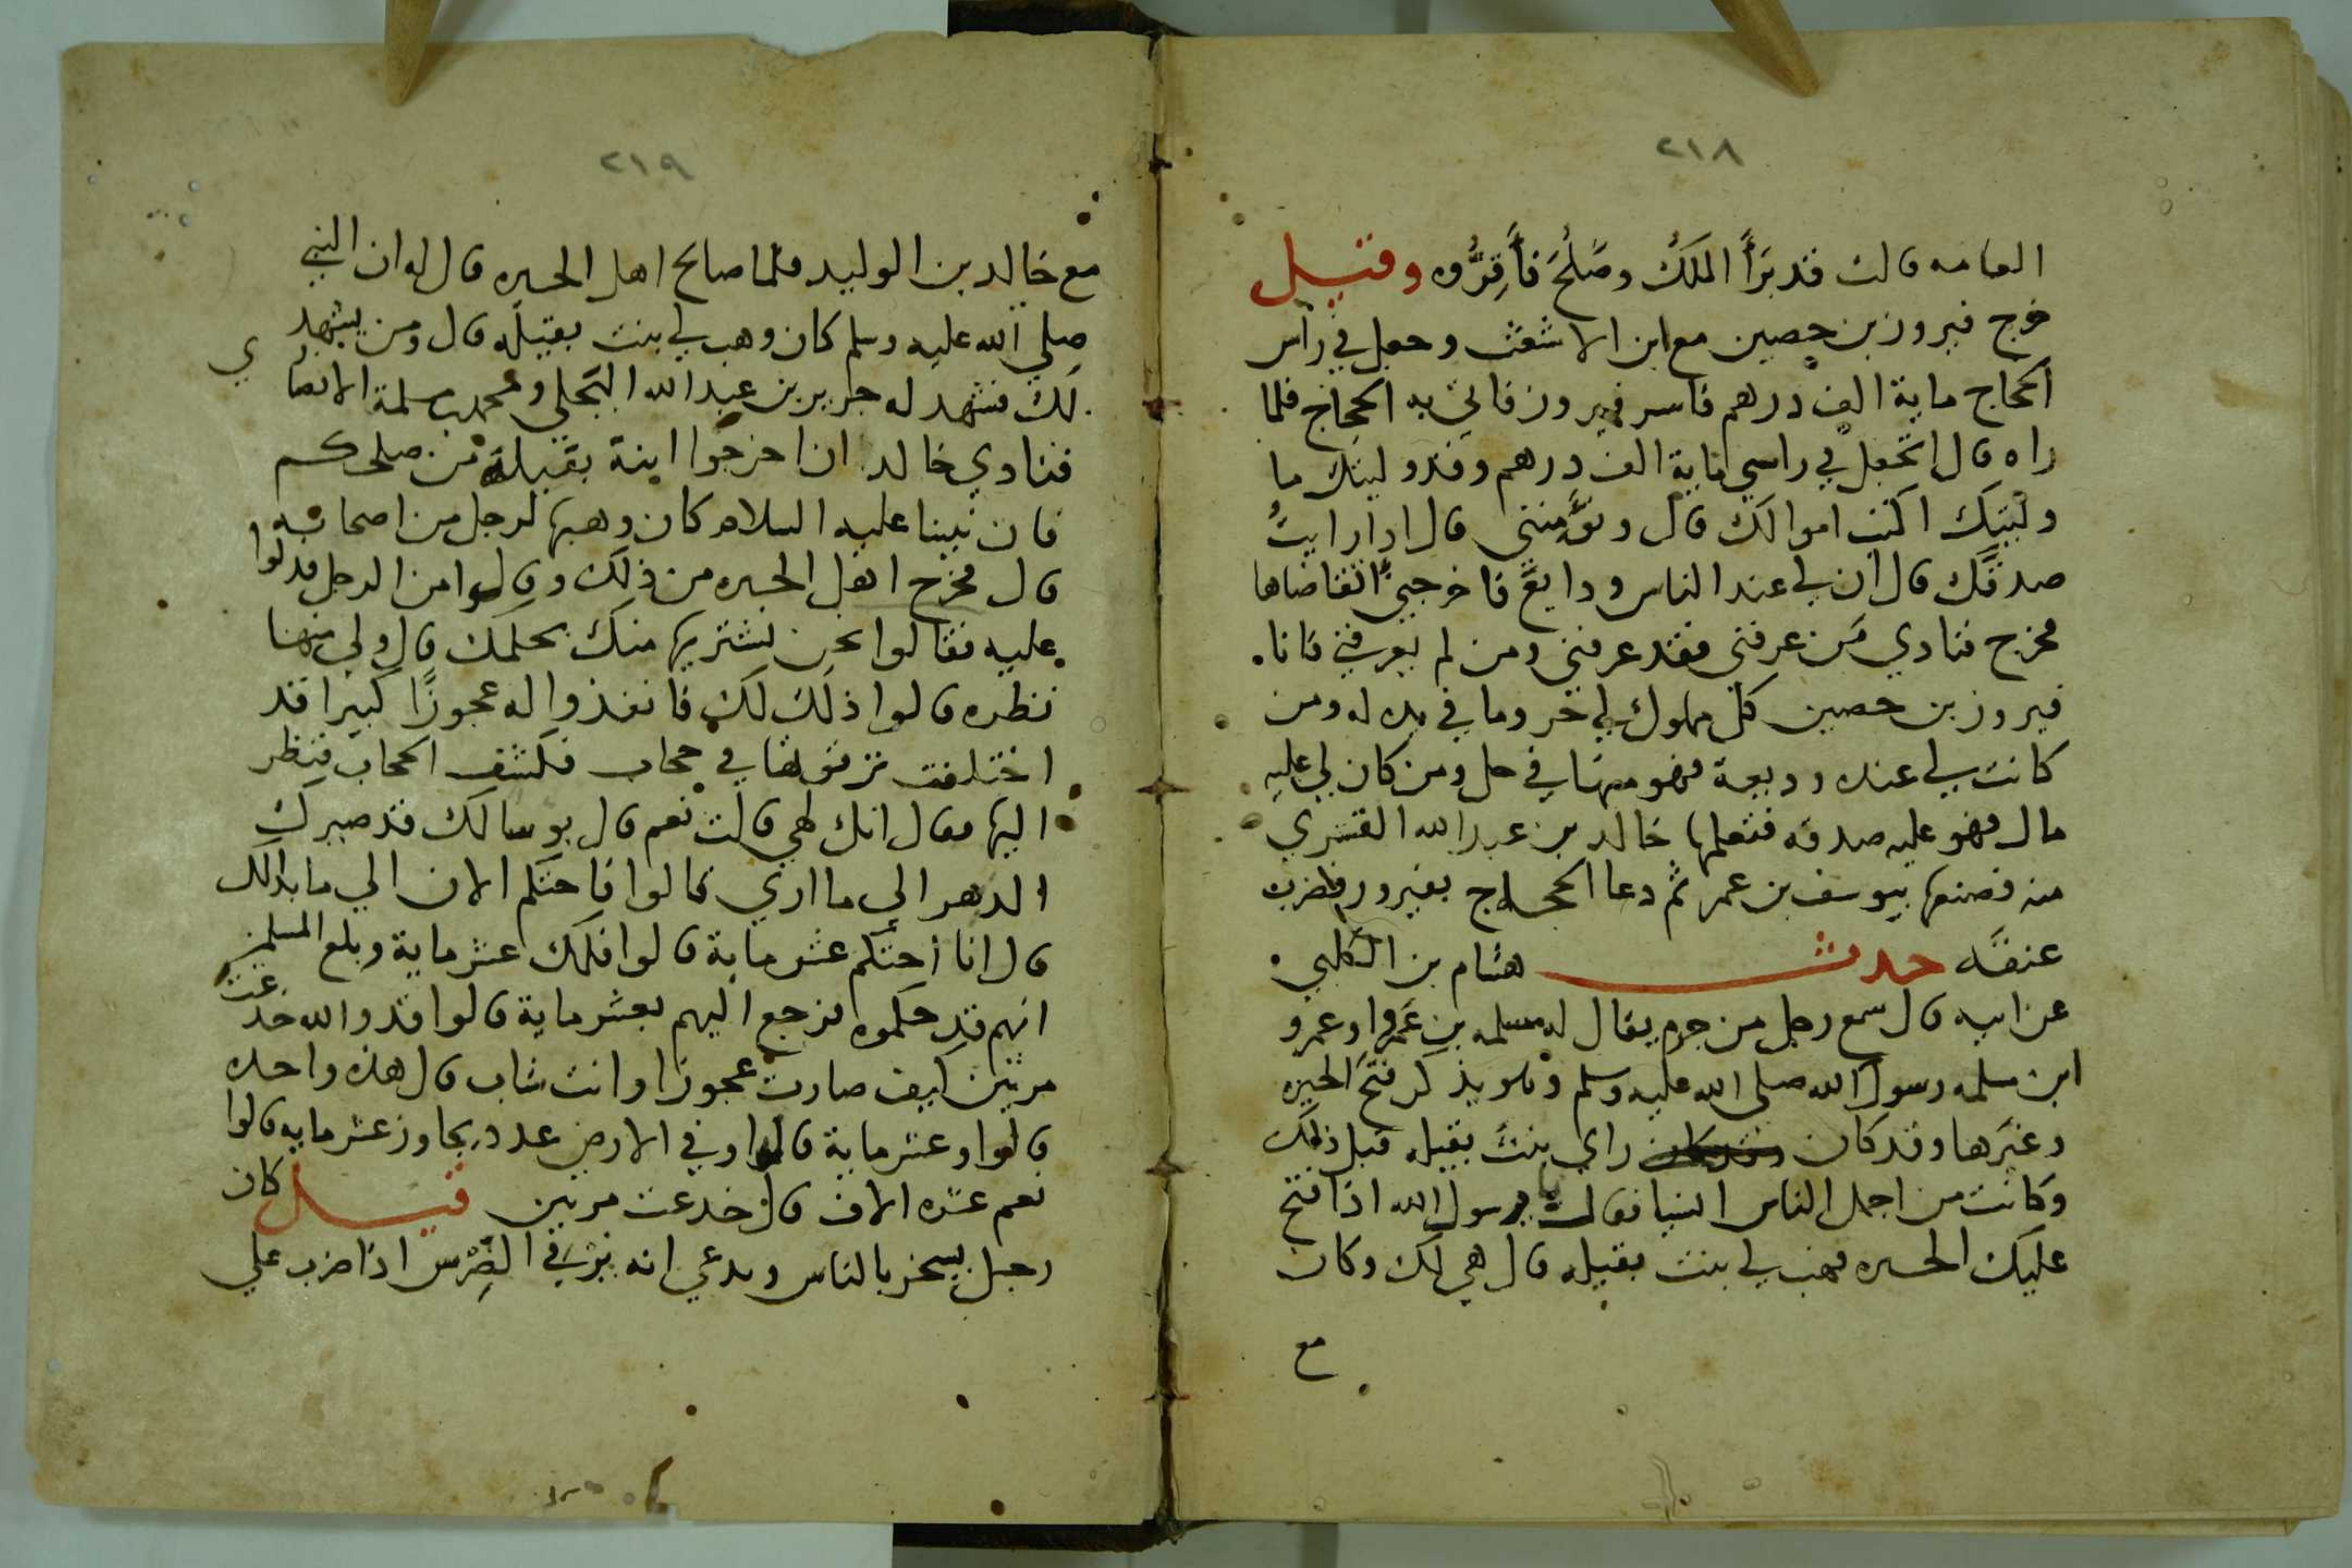 ٢١٨
العامه قالت قد برأ المَلَكُ وصَلُحَ فأَقِرُّوه وقيل
خرج فيروز بن حصين مع ابن الاشعث وجعل في راس
الحجاج ماية الف درهم فاسر فيروز فاتي به الحجاج فلما
راه قال اتجعل في راسي ماية الف درهم وقد وليتك ما
وليتك اكتب اموالك قال وتؤمنني قال اذا رايتُ
صدقك قال ان لي عند الناس ودايع فاخرجني اتقاضاها
فخرج فنادي مَن عرفني فقد عرفني ومن لم يعرفني فانا
فيروز بن حصين كل مملوك لي حر وما في يده له ومن
كانت لي عنده وديعة فهو منها في حل ومن كان لي عليه
مال فهو عليه صدقه فتعلمها خالد بن عبد الله القسري
منه فصنعها بيوسف بن عمر ثم دعا الحجاج بفيروز فضرب
عنقه حدث هشام بن الكلبي
عن ابيه قال سمع رجل من جرم يقال له مسلمه بن عَمرو او عمرو
ابن مسلمه رسول الله صلى الله عليه وسلم وهو يذكر فتح الحيره
وغيرها وقد كان راي بنت بقيله قبل ذلك
وكانت من اجمل الناس النسا فقال يرسول الله اذا فتح
عليك الحيره فهب لي بنت بقيله قال هي لك وكان
مع
٢١٩
مع خالد بن الوليد فلما صالح اهل الحيره قال له ان النبي
صلي الله عليه وسلم كان وهب لي بنت بقيله قال ومن يشهد
لك فشهد له جرير بن عبد الله البجلي ومحمد بن مسلمة الانصاري
فنادي خالد ان اخرجوا ابنة بقيلة من صلحكم
فان نبينا عليه السلام كان وهبها لرجل من اصحابه
قال فخرج اهل الحيره من ذلك وقالوا من الرجل فدلوا
عليه فقالوا نحن نشتريها منك بحكمك قال ولي منها
نظره قالوا ذلك لك فانفذوا له عجوزًا كبيرا قد
اختلفت ثم في حجاب فكشف الحجاب فنظر
اليها فقال انك لهي قالت نعم قال بوسا لك قد صيرك
الدهر الي ما اري قالوا فاحتكم الان الي ما بدالك
قال انا احتكم عشر ماية قالوا فلك عشر ماية وبلغ المسلمين
انهم قد حكموه فرجع اليهم بعشر ماية قالوا قد والله خدعت
مرتين كيف صارت عجوزا وانت شاب قال هذه واحده
قالوا وعشر ماية قال او في الارض عدد يجاوز عشر مايه قالوا
نعم عشره الاف قال خدعت مرتين قيل كان
رجل يسخر بالناس ويدعي انه يرقي الضِرْس اذا ضرب علي